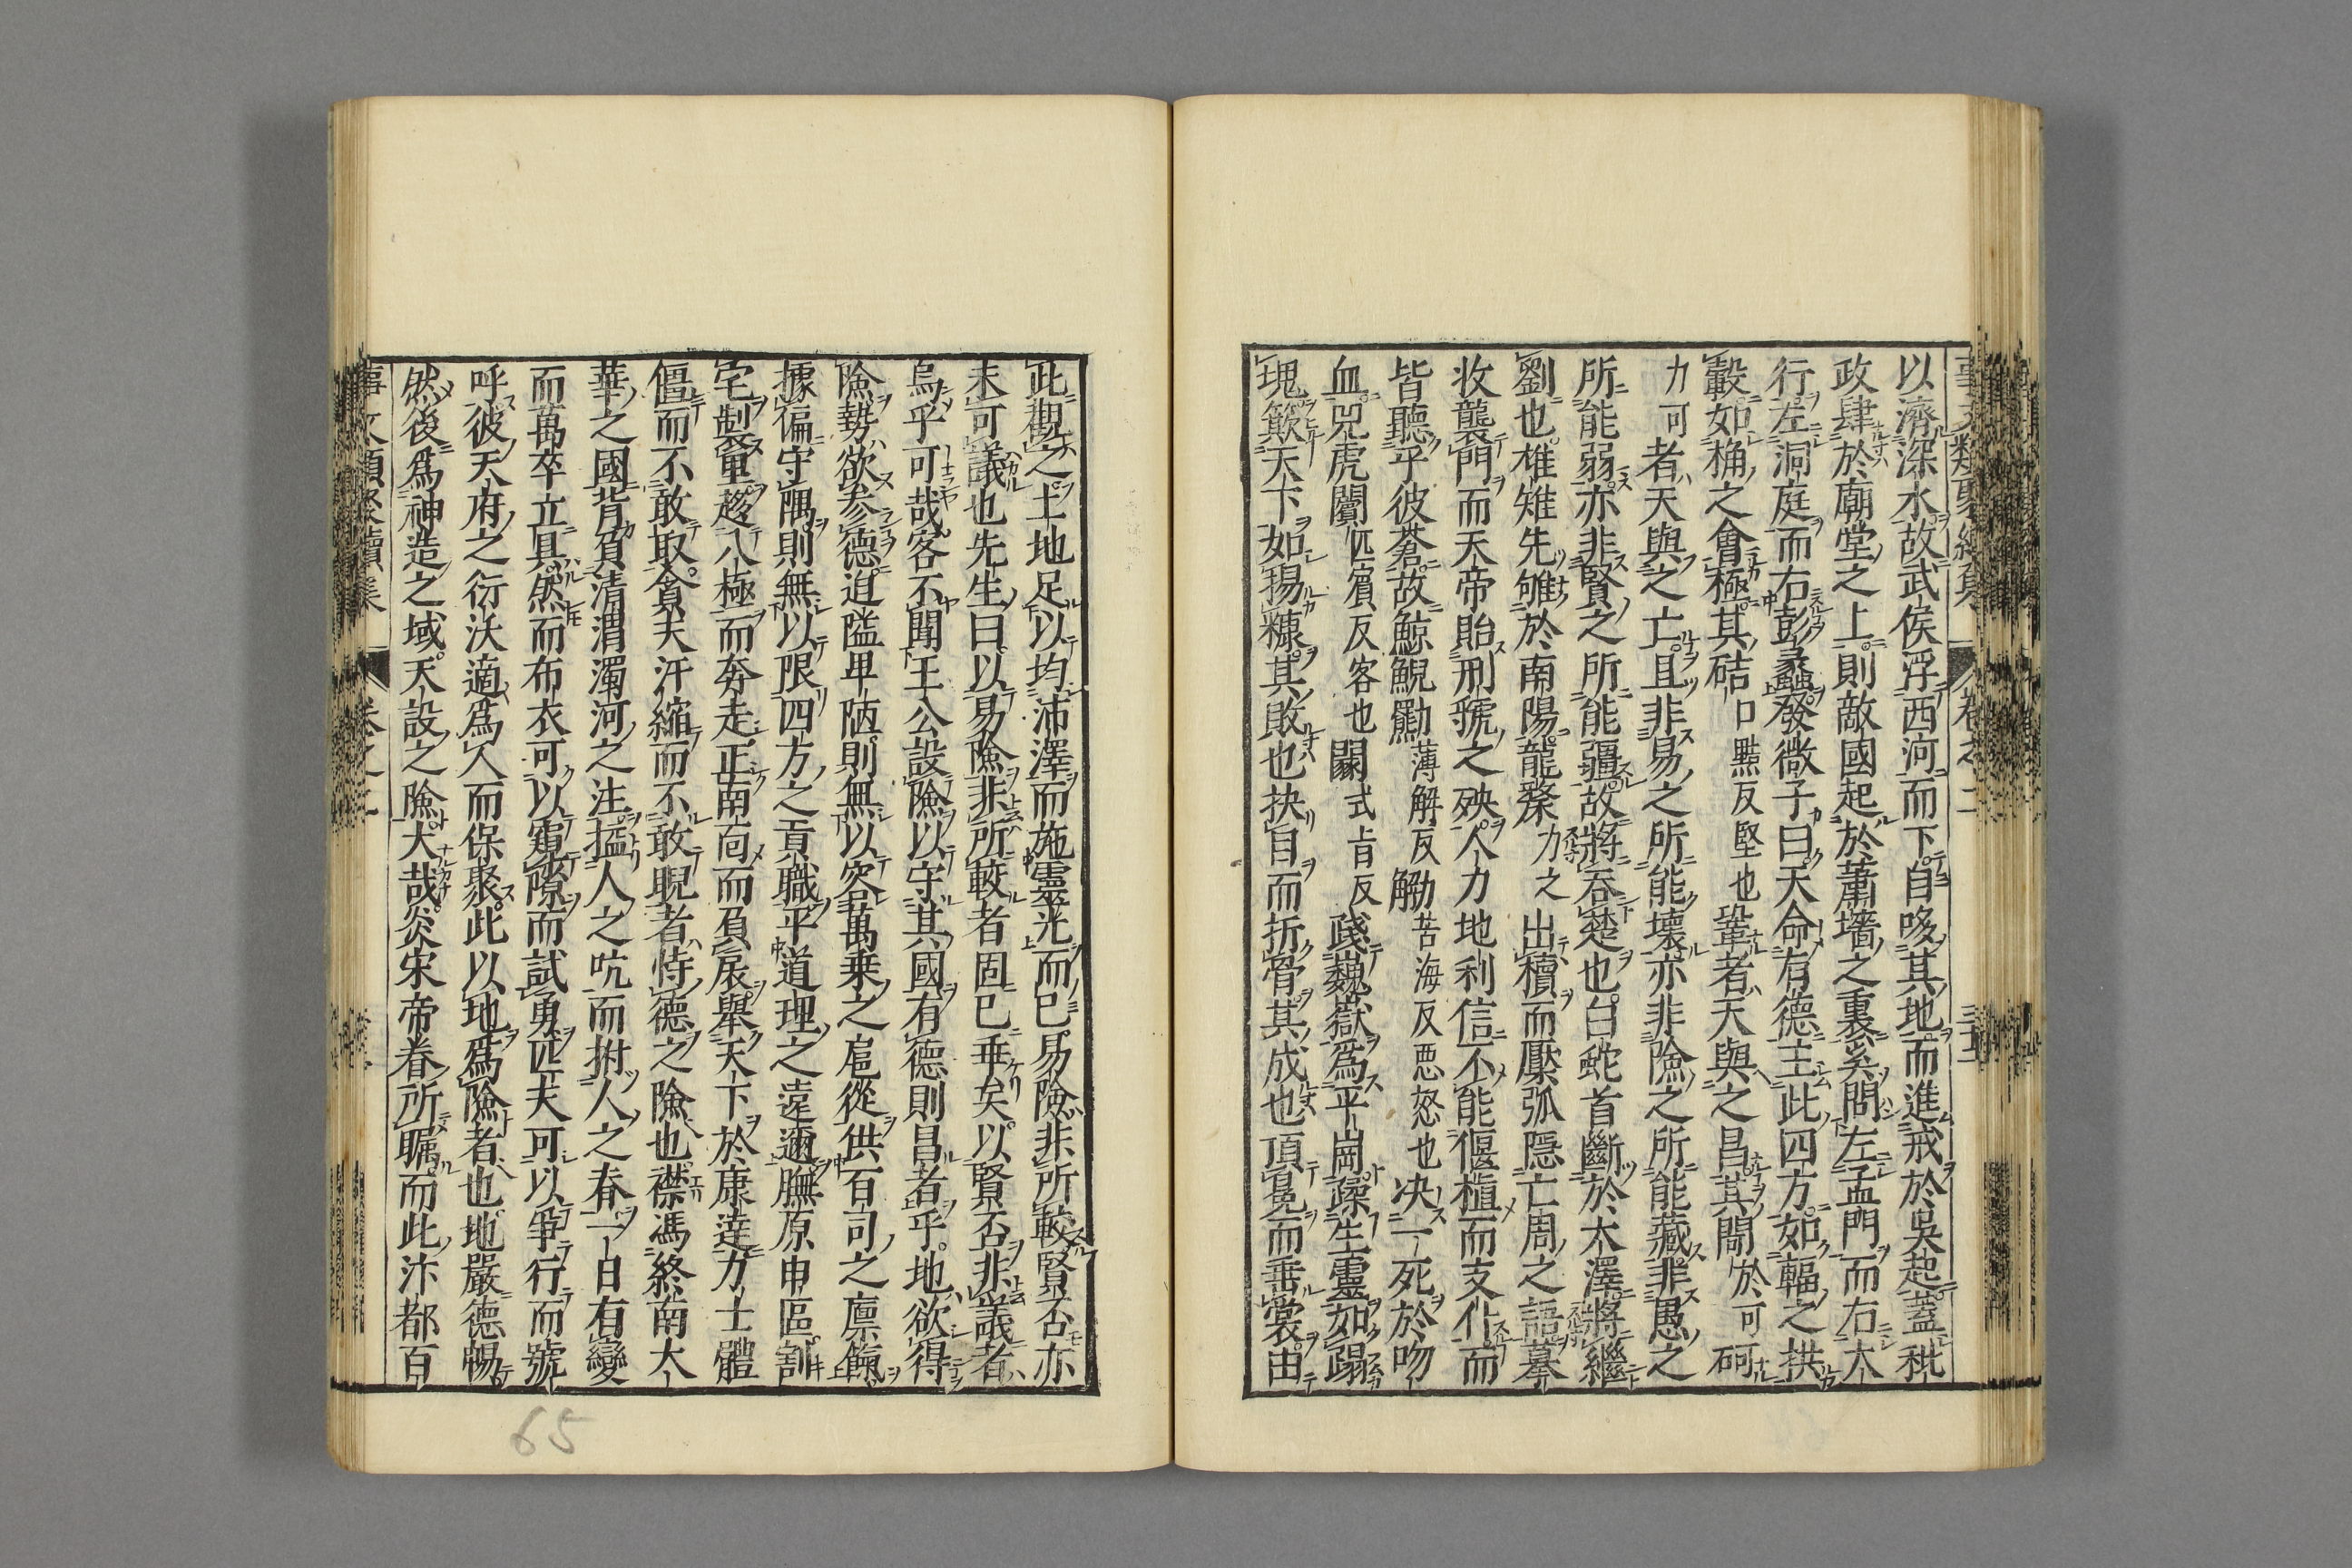 以濟深水故武侯浮西河而下自哆其地而進戒於吳起蓋秕
政肆於廟堂之上則敵國起於蕭墻之裏奚問左孟門而右太
行左洞庭而右彭蠡發微子曰天命有德主此四方如輻之拱
轂如桷之會極其硈口黠反堅也鞏者天與之昌其閜於可砢
力可者天與之亡且非易之所能壞亦非險之所能藏非愚之
所能弱亦非賢之所能彊故將吞楚也白蛇首斷於大澤將繼
劉也椎雉先雊於南陽龍漦力之出櫝而檿弧隱亡周之語摹
收襲門而天帝貽刑虢之殃人力地利信不能偃植而支仆而
皆聽乎彼蒼故鯨鯢勫薄解反勫苦海反悪怒也决一死於吻
血兕虎闠匹賔反客也闞式旨反踐巍嶽爲平崗躁生靈如蹋
塊簸天下如揚糠其敗也抉目而折骨其成也頂冕而垂裳由
此觀之土地足以均沛澤而施靈光而已易險非所較賢否亦
未可議也先生曰以易險非所較者固已乖矣以賢否非議者
烏乎可哉客不聞王公設險以守其國有德則昌者乎地欲得
險勢欲參德迫隘卑陋則無以容萬乗之扈從供百司之廪餼
據偏守隅則無以限四方之貢職平道理之遠邇膴原申區割
宅制里趨八極而奔走正南面而負扆擧天下於康逵力士體
僵而不敢取貪夫汗縮而不敢睨者恃德之險也襟馮終南太
華之國背負清渭濁河之注搤人之吭而拊人之脊一日有變
而萬卒立具然而布衣可以窺隙而試勇匹夫可以爭行而號
呼彼天府之衍沃適爲人而保聚此以地爲險者也地嚴德暢
然後爲神造之域天設之險大哉炎宋帝眷所矚而此汴都百
65